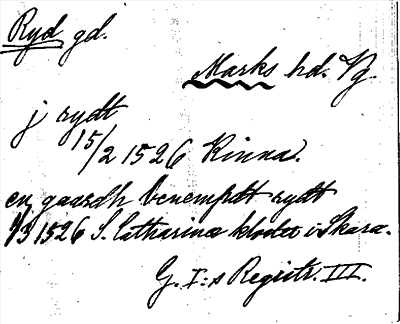 Ryd gd.
Marks hd. Vg
j rydt
15/2 1526 Kinna.
en gaardh benempdt rydt
1/3 1526 S. Catharinæ kloster i Skara.
G. I:s Registr. III.